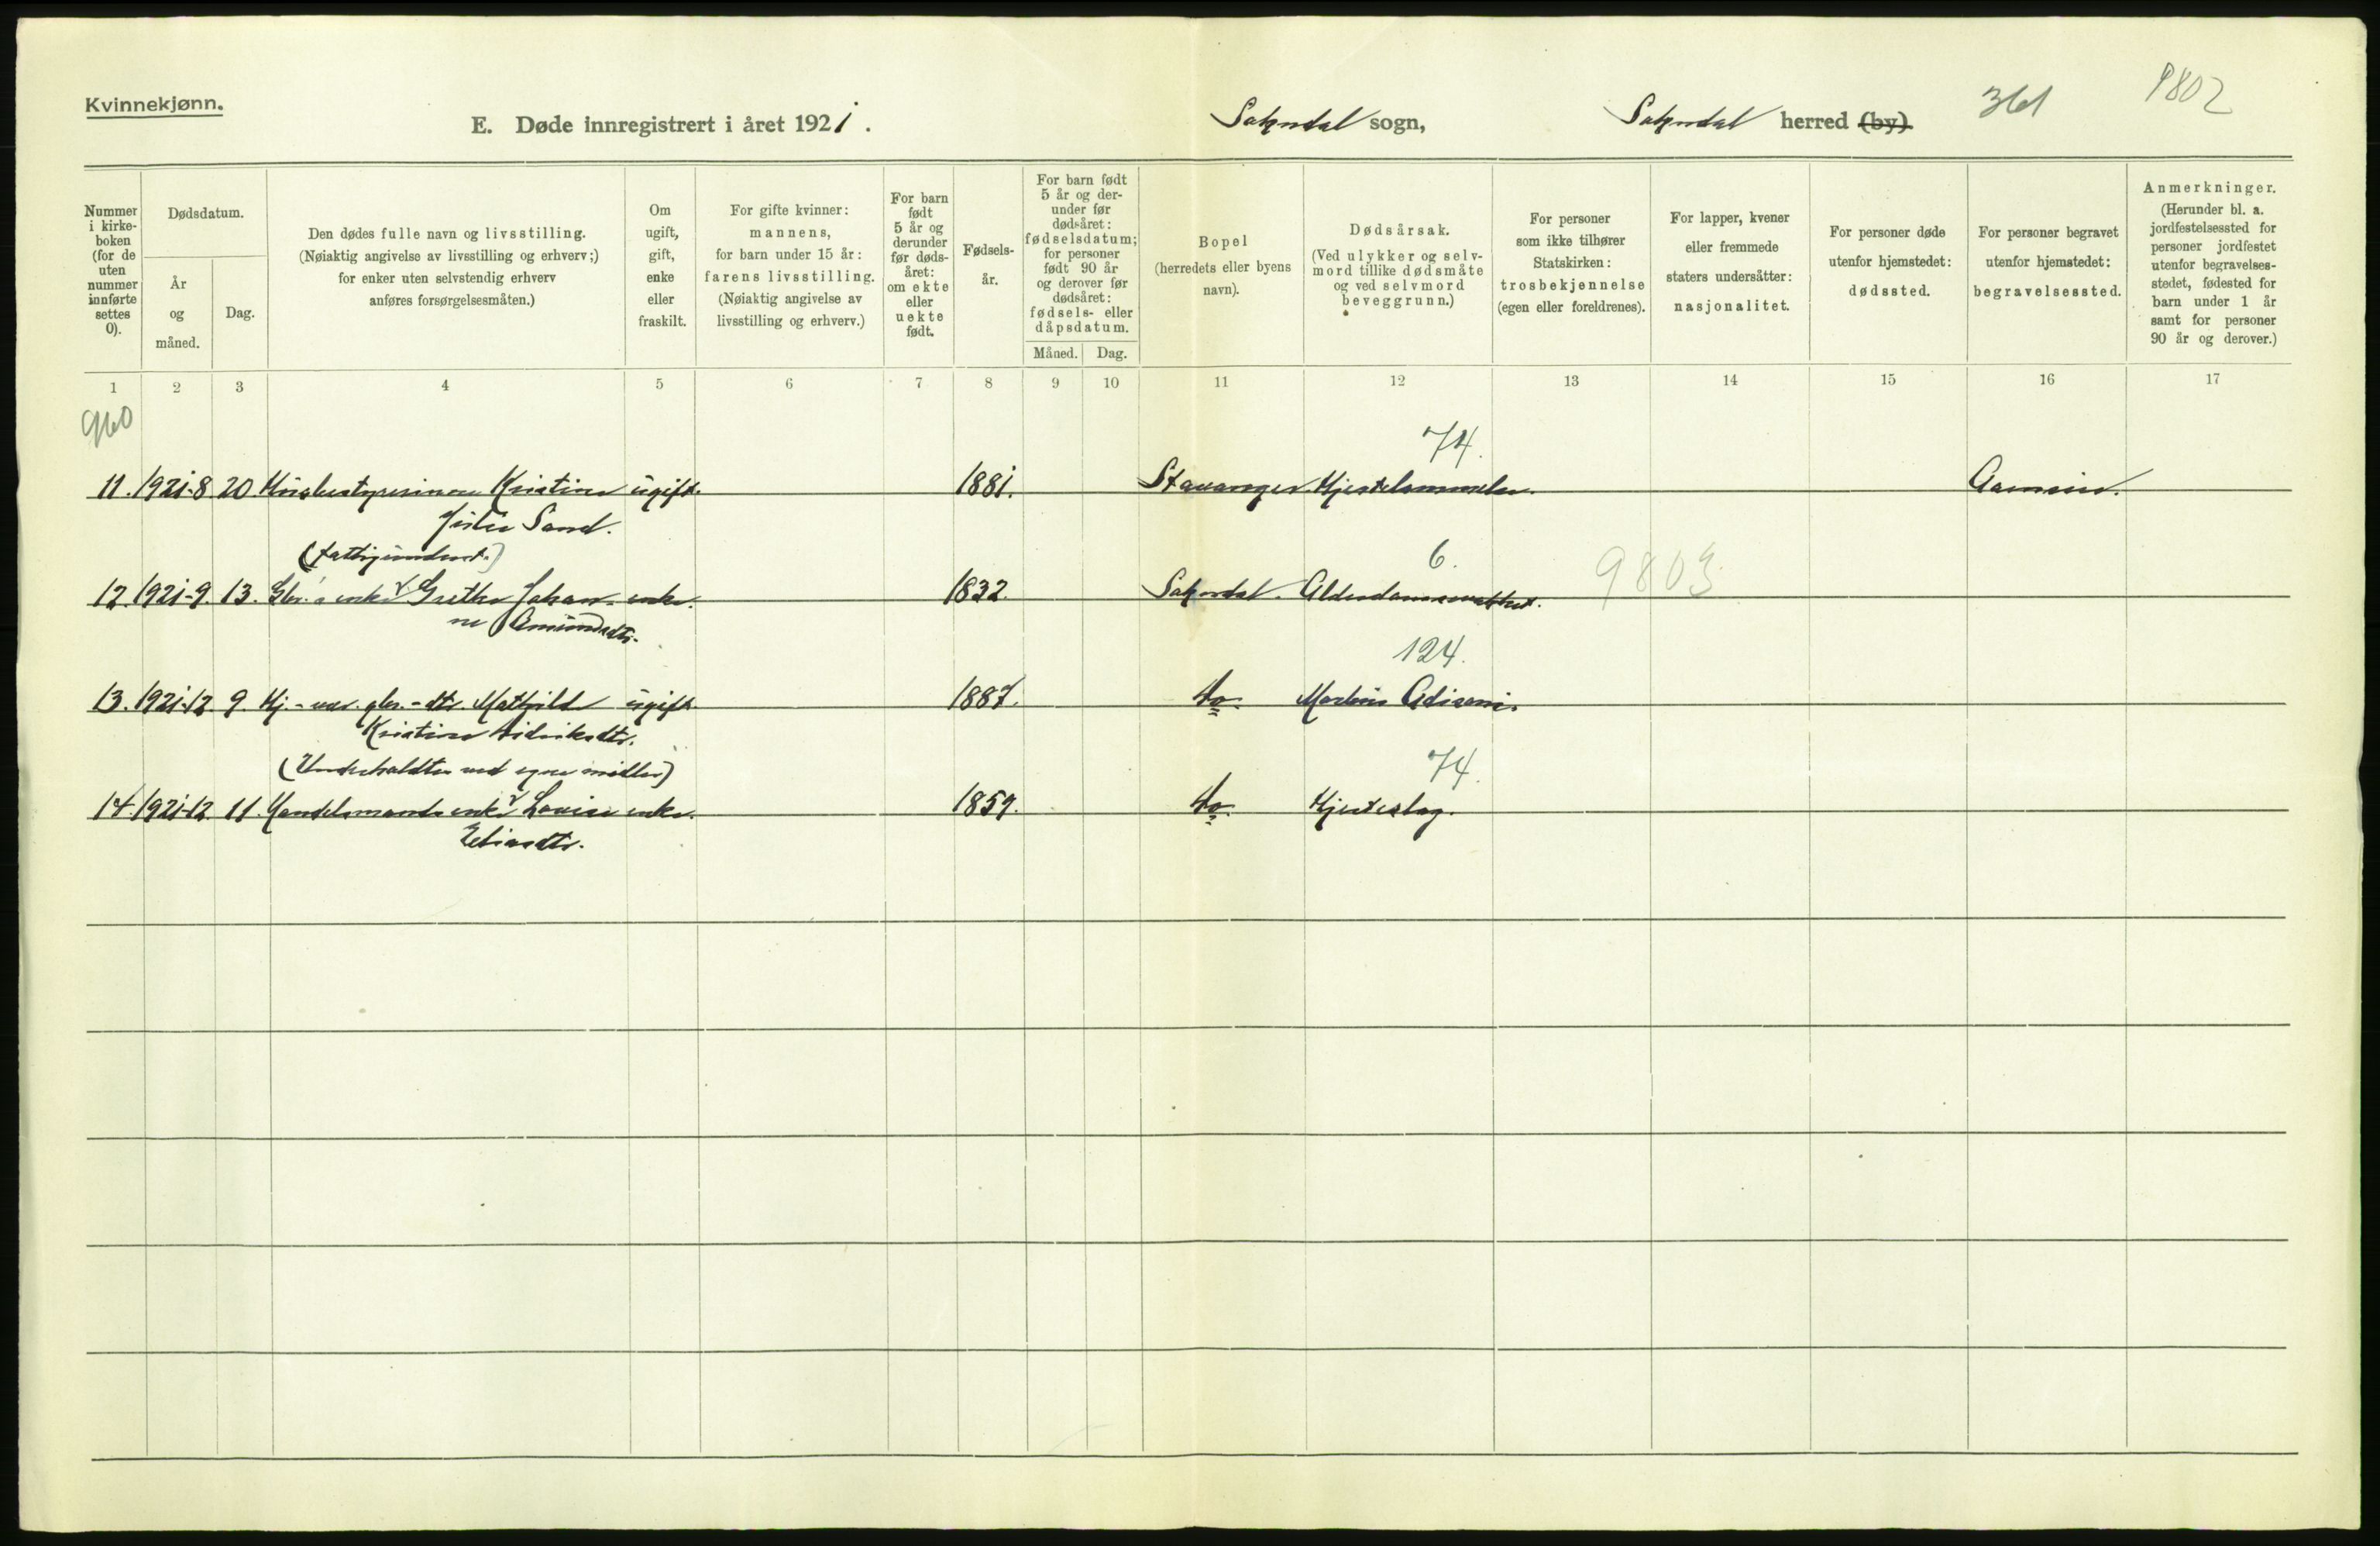 Kvinnekjønn.
E. Døde innregistrert i året 1921.
Sokndal sogn,
Sokndal herred (by)
361
9802
Nummer i kirkeboken (for de uten nummer innførte settes 0).
Dødsdatum.
År og måned.
Dag.
Den dødes fulle navn og livsstilling.
(Nøiaktig angivelse av livsstilling og erhverv;)
for enker uten selvstendig erhverv
anføres forsørgelsesmåten.)
Om ugift, gift, enke eller fraskilt.
For gifte kvinner:
mannens,
for barn under 15 år:
farens livsstilling.
(Nøiaktig angivelse av
livsstilling og erhverv.)
For barn født 5 år og derunder før dødsåret: om ekte eller uekte født.
Fødselsår.
For barn født 5 år og derunder før dødsåret: fødselsdatum; for personer født 90 år og derover før dødsåret: fødsels- eller dåpsdatum.
Måned.
Dag.
Bopel
(herredets eller byens
navn).
Dødsårsak.
(Ved ulykker og selvmord tillike dødsmåte og ved selvmord beveggrunn.)
For personer
som ikke tilhører
Statskirken:
trosbekjennelse
(egen eller foreldrenes).
For lapper, kvener
eller fremmede
staters undersåtter:
nasjonalitet.
For personer døde
utenfor hjemstedet:
dødssted.
For personer begravet
utenfor hjemstedet:
begravelsessted.
Anmerkninger.
(Herunder bl. a.
jordfestelsessted for
personer jordfestet
utenfor begravelses-
stedet, fødested for
barn under 1 år
samt for personer
90 år og derover.)
1 2 3 4 5 6 7 8 9 10 11 12 13 14 15 16 17
960
74.
11. 1921-8 20 Husbestyrerinne Kristine ugift. 1881. Stavanger Hjertelammelse.
Sand.
(fattigunderst.)
6.
9803
12. 1921-9. 13. Gbr.'s enke Grethe Johan- enke. 1832. Sokndal. Alderdomssvakhet.
ne Amundsdtr.
124.
13. 1921-12 9. Hj.-vær. gbr.-dtr. Mathilde ugift 1887. do. Morbus Adisoni.
Kristine Didriksdtr.
(Underholdtes ved egne midler)
74.
14. 1921-12 11. Handelsmands enke Lovise enke. 1859. do. Hjerteslag.
Eliasdtr.